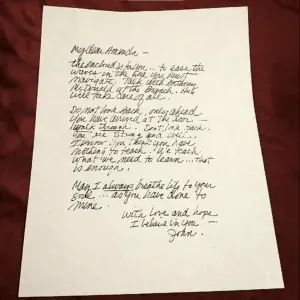 My Dear Amanda —
The enclosed is for you... to ease the
waves in the sea you must
navigate. Talk with Anthony
McDonald at the branch. He
will take care of all.
Do not look back, only ahead
You have arrived at the door —
walk through. Don't look back.
You are strong and well.
I know you think you have
nothing to teach. We teach
what we need to learn... that
is enough.
May I always breathe life to your
soul... as you have done to
mine.
With love and hope
I believe in you —
John.